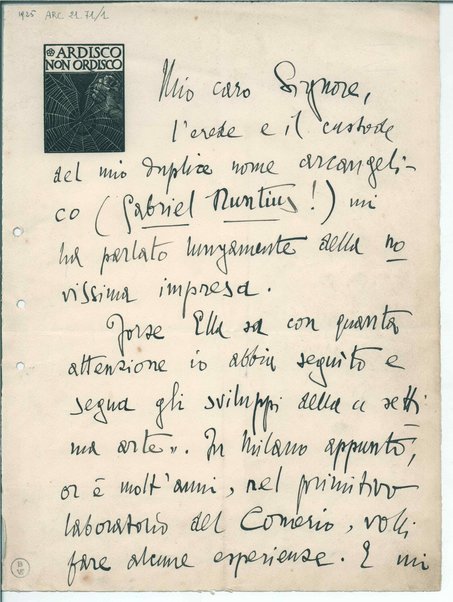 1925 ARC 21.71/1
ARDISCO
NON ORDISCO
Mio caro Signore,
l'erede e il custode
del mio duplice nome arcangeli-
co (Gabriel Nuntius!) mi
ha parlato lungamente della no
vissima impresa.
Forse Ella sa con quanta
attenzione io abbia seguito e
segua gli sviluppi della « setti
ma arte ». In Milano appunto,
or è molt'anni, nel primitivo
laboratorio del Comerio, volli
fare alcune esperienze. E mi